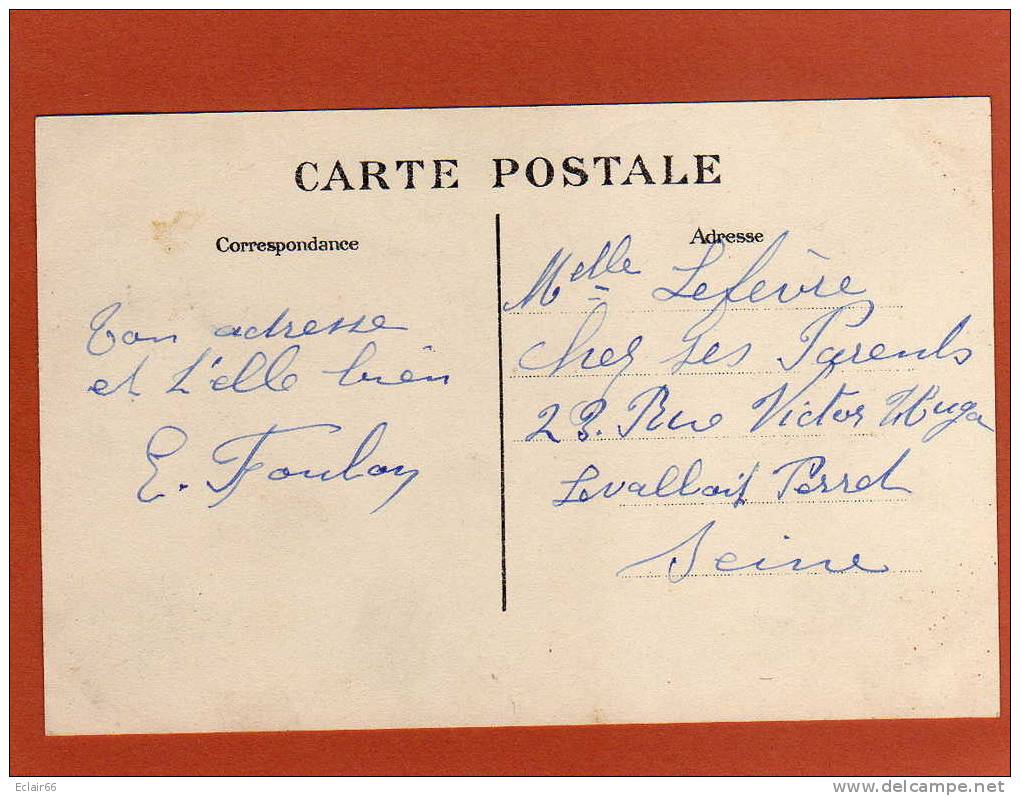 CARTE POSTALE
Correspondance
Ton adresse
et L'elle bien
E. Foulon
Adresse
Melle Lefèvre
Chez Ses Parents
23. Rue Victor Hugo
Levallois Perret
Seine
Eclair66
www.delcampe.net